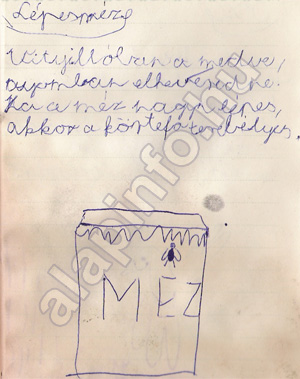 Lépesméz
Vityillóban a medve,
nyomban elheveredne.
Ha a méz lépes,
akkor a körtefa terebélyes.
MÉZ
alapinfo.hu